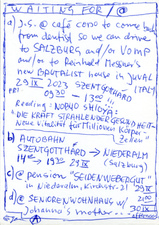 WAITING FOR /@
a) J.S. @ café cono to come back
from dentist so we can drive
to SALZBURG and/or VOMP
and/or to Reinhold Messner's
new BRUTALIST house in JUVAL
29 IX 2023 SZENTGOTTHÁRD (ITALY)
09 30 13 00
Reading: NORIO SHIOYA:
"DIE KRAFT STRAHLENDER GESUNDHEIT-
Neue Vitalität für Millionen Körper-
Zellen"
b) AUTOBAHN
SZENTGOTTHÁRD → NIEDERALM
14 19 30 29 IX (Salzburg)
c) @ pension "SEIDENWEBERGUT"
in Niederalm, Kirchstr. 21 29 IX
d) @ SENIORENWOHNHAUS w/
Johanna's mother 30 IX